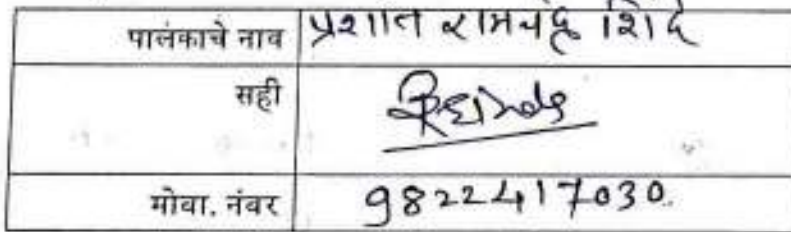 पालकाचे नाव प्रशांत रामचंद्र शिंदे
सही
मोबा. नंबर 9822417030.